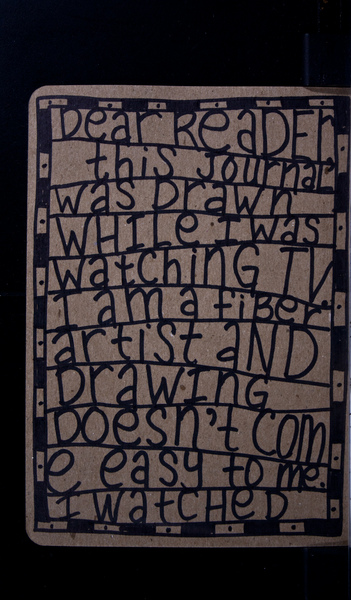 Dear ReaDEr
this Journal
was Drawn
WHILe I was
watchinG TV
I am a fiBer
artist aND
DrawING
Doesn't COM
e easy to me.
I WatCHED